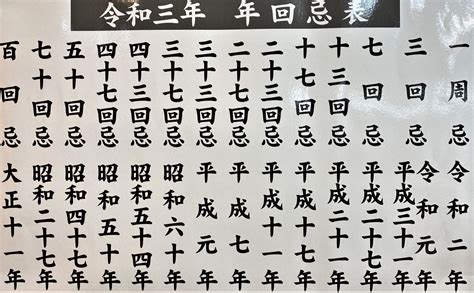 令和三年 年回忌表
一周忌 令和二年
三回忌 令和元年
平成三十一年
七回忌 平成二十七年
十三回忌 平成二十一年
十七回忌 平成十七年
二十三回忌 平成十一年
二十七回忌 平成七年
三十三回忌 平成元年
三十七回忌 昭和六十年
四十三回忌 昭和五十四年
四十七回忌 昭和五十年
五十回忌 昭和四十七年
七十回忌 昭和二十七年
百回忌 大正十一年